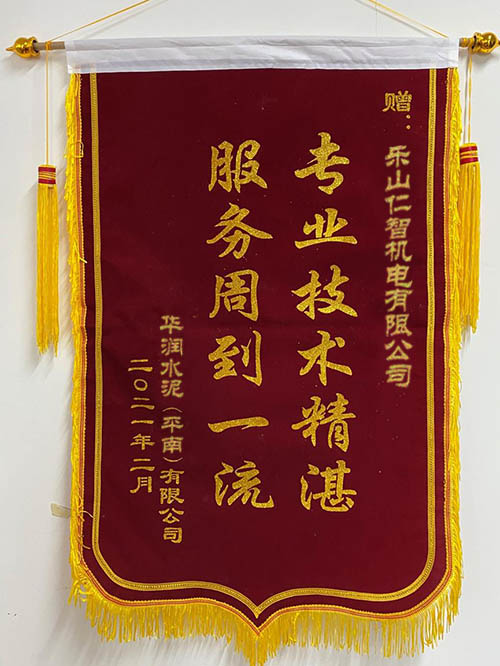 赠：乐山仁智机电有限公司
专业技术精湛
服务周到一流
华润水泥（平南）有限公司
二〇二一年二月